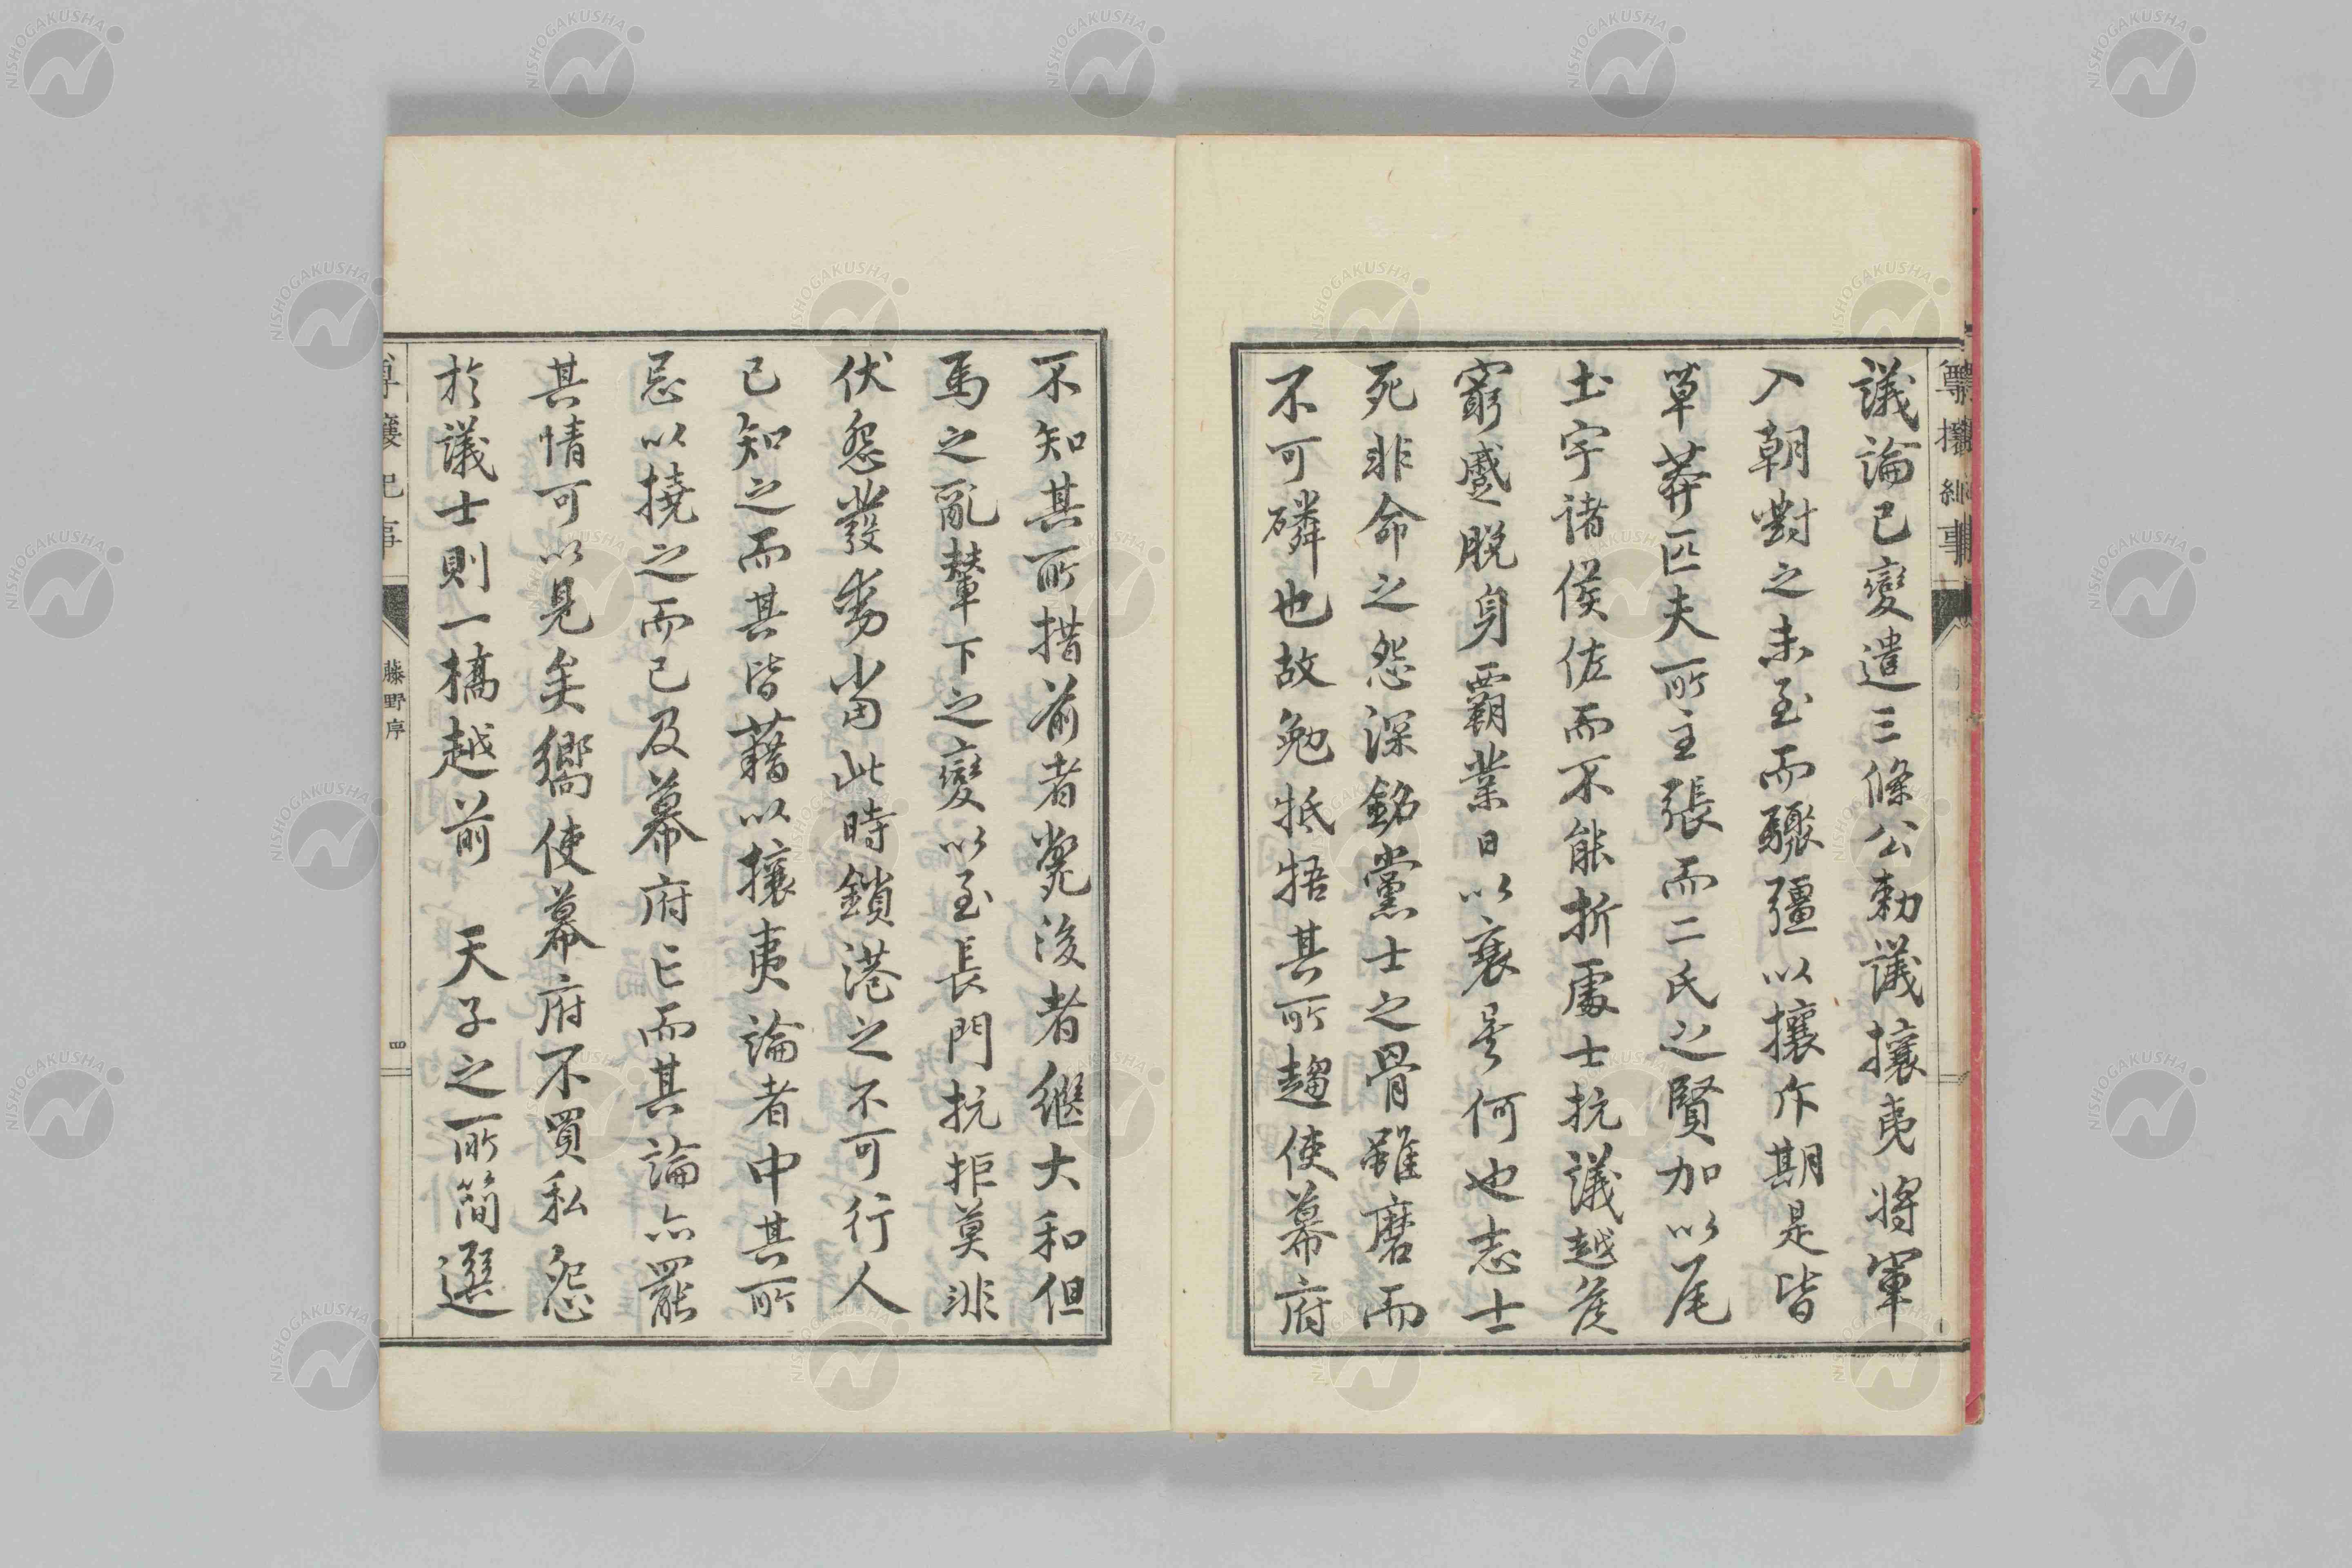 議論已變遣三條公勅議攘夷將軍
入朝對之未至而驟彊以攘斥期是皆
草莽匹夫所主張而二氏之賢加以尾
土宇諸侯佐而不能折處士抗議越矦
窮蹙脫身霸業日以衰是何也志士
死非命之怨深銘黨士之骨雖磨而
不可磷也故勉牴牾其所趨使幕府
不知其所措前者斃後者繼大和但
馬之亂輦下之變以至長門抗拒莫非
伏怨發勇當此時鎖港之不可行人
已知之而其皆藉以攘夷論者中其所
忌以撓之而已及幕府亡而其論亦罷
其情可以見矣嚮使幕府不買私怨
於議士則一橋越前 天子之所簡選
尊攘紀事
藤野序
四
NISHOGAKUSHA